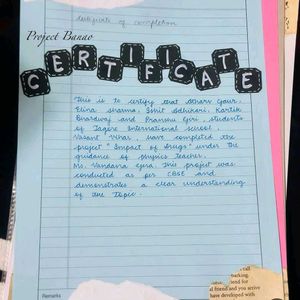 certificate of completion
Project Banao
CERTIFICATE
This is to certify that Atharv Gaur,
Elina Sharma, Ishit Adhikari, Kartik
Bhardwaj and Pranshu Giri, students
of Tagore International school,
Vasant Vihar, have completed the
project "Impact of Drugs" under the
guidance of physics teacher,
Ms. Vandana. This project was
conducted as per CBSE and
demonstrates a clear understanding
of the Topic.
Remarks
tall
parking.
friend for
al friend and you arrive
have developed with